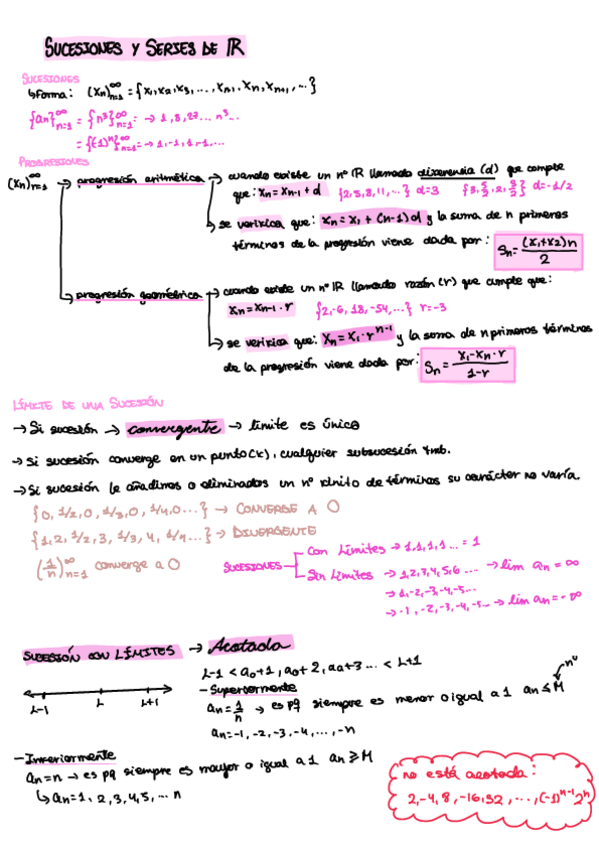 SUCESIONES Y SERIES DE ℝ
SUCESIONES
↳ forma: (Xn)∞n=1 = {X1, X2, X3, ..., Xn-1, Xn, Xn+1, ...}
{an}∞n=1 = {n³}∞n=1 : → 1, 8, 27... n³...
= {(-1)ⁿ}∞n=1 = → 1, -1, 1, -1, ...
PROGRESIONES
(Xn)∞n=1 → progresión aritmética → cuando existe un nº ℝ llamado diferencia (d) que cumple
que: Xn = Xn-1 + d {2, 5, 8, 11, ...} d=3 {3, 5/2, 2, 3/2} d=-1/2
→ se verifica que: Xn = X1 + (n-1)d y la suma de n primeros
términos de la progresión viene dada por: Sn = (X1+X2)n / 2
→ progresión geométrica → cuando existe un nº ℝ llamado razón (r) que cumple que:
Xn = Xn-1 · r {2, -6, 18, -54, ...} r=-3
→ se verifica que: Xn = X1 · r^n-1 y la suma de n primeros términos
de la progresión viene dada por: Sn = X1 - Xn · r / 1-r
LÍMITE DE UNA SUCESIÓN
→ Si sucesión → convergente → límite es único
→ Si sucesión converge en un punto (k), cualquier subsucesión tmb.
→ Si sucesión le añadimos o eliminados un nº finito de términos su carácter no varía.
{0, 1/2, 0, 1/3, 0, 1/4, 0...} → CONVERGE A 0
{1, 2, 1/2, 3, 1/3, 4, 1/4...} → DIVERGENTE
(1/n)∞n=1 converge a 0
SUCESIONES
Con Límites → 1, 1, 1, 1 ... = 1
Sin Límites → 1, 2, 3, 4, 5, 6 ... → lim an = ∞
→ 1, -2, -3, -4, -5...
→ -1, -2, -3, -4, -5... → lim an = -∞
SUCESIÓN CON LÍMITES → Acotada
L-1 < a0+1, a0+2, a0+3 ... < L+1
L-1 L L+1
- Superiormente
an = 1/n → es pq siempre es menor o igual a 1 an ≤ M
nº
an = -1, -2, -3, -4, ..., -n
- Inferiormente
an = n → es pq siempre es mayor o igual a 1 an ≥ M
↳ an = 1, 2, 3, 4, 5, ... n
no está acotada:
2, -4, 8, -16, 32, ..., (-1)^n-1 2^n